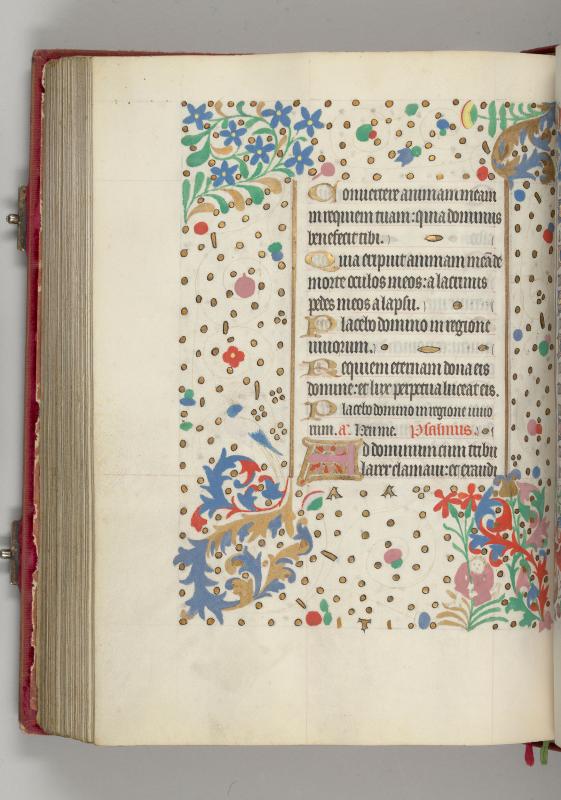 Conuertere animam meam
in requiem tuam: quia dominus
benefecit tibi.
Quia eripuit animam meā de
morte oculos meos: a lacrimis
pedes meos a lapsu.
Placebo domino in regione
uiuorum.
Requiem eternam dona eis
domine: et lux perpetua luceat eis.
Placebo domino in regione uiuo
rum. a. Heu me. Psalmus
Ad dominum cum tribu
larer clamaui: et exaudi